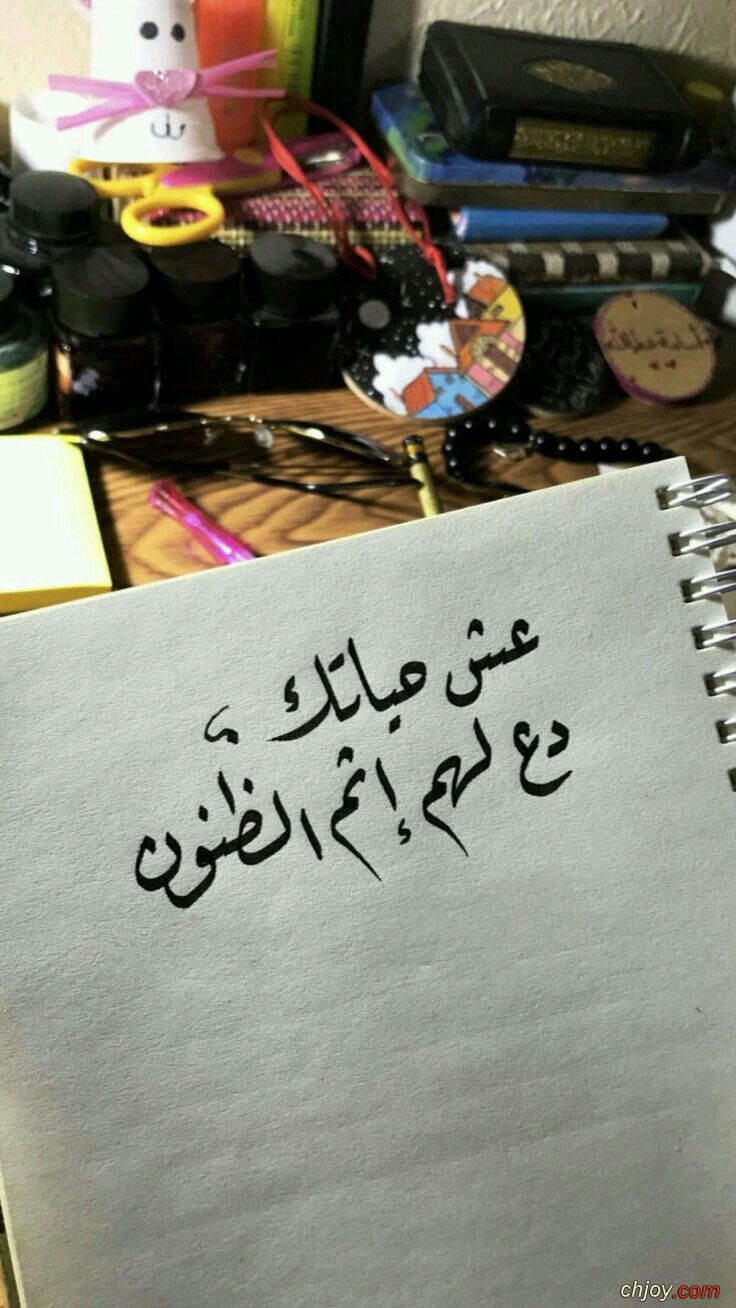 عش حياتك ،
دع لهم إثم الظنون
chjoy.com